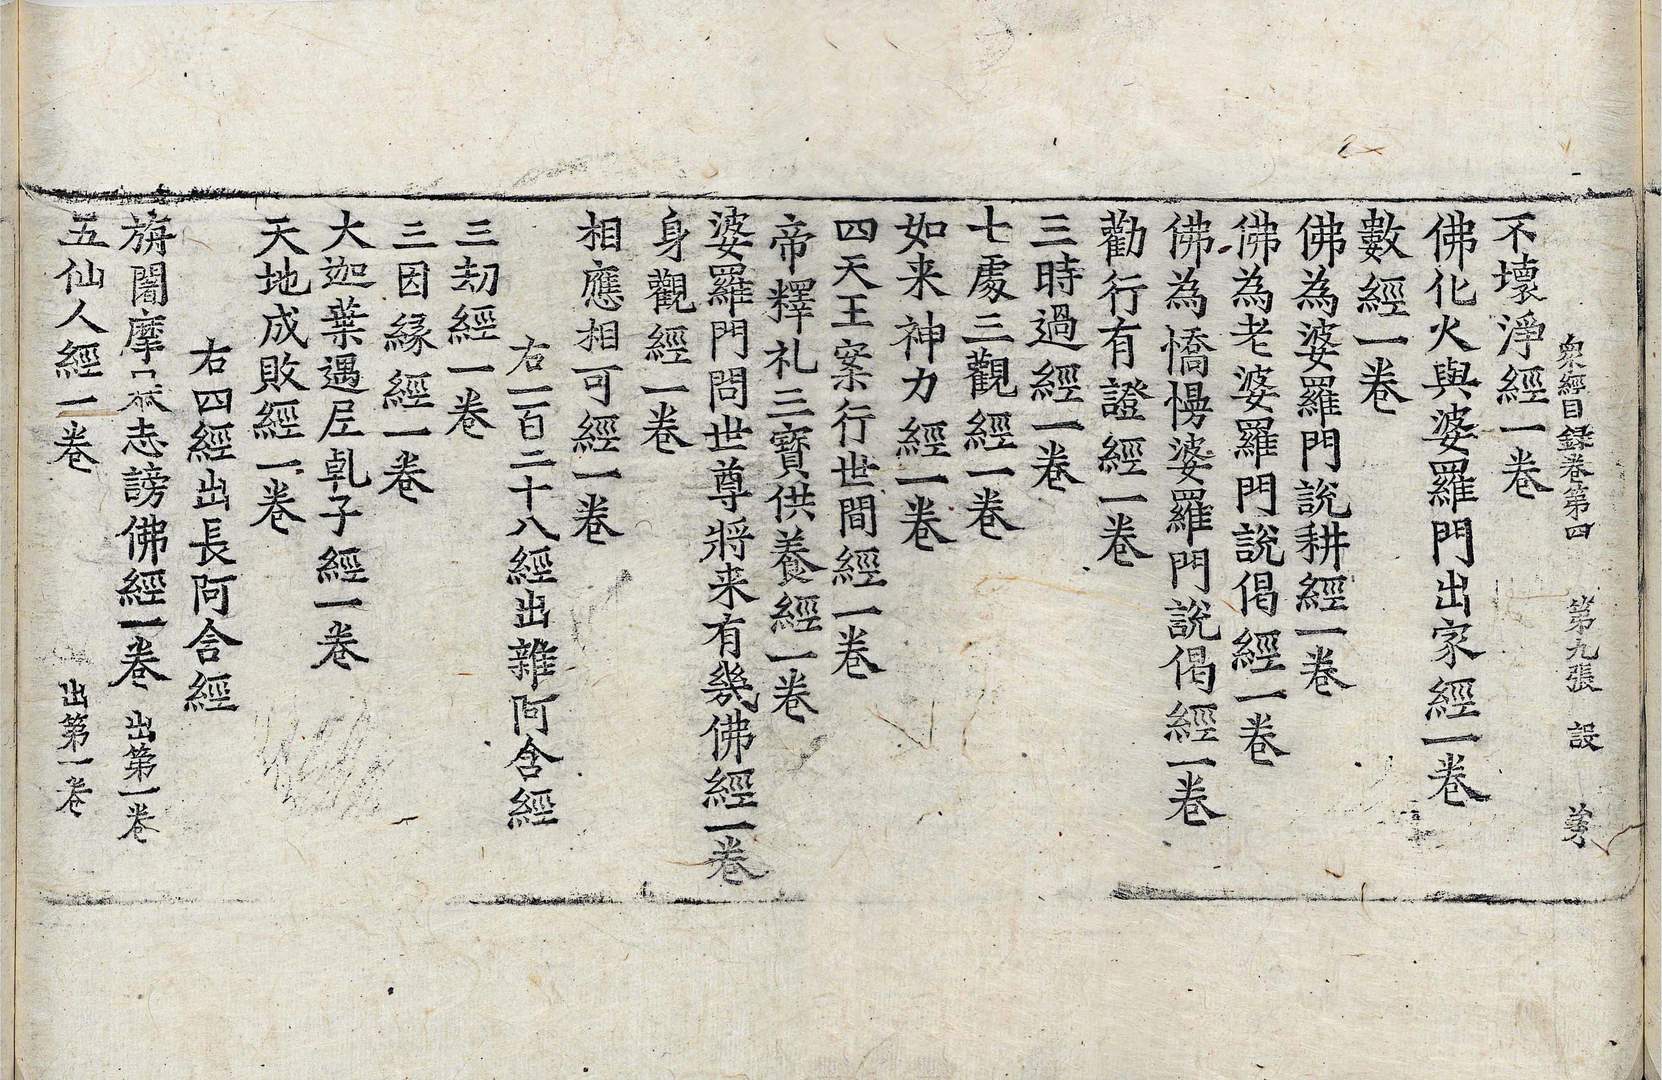 衆經目録卷第四 第九張 設
不壞淨經一卷
佛化火與婆羅門出家經一卷
數經一卷
佛為婆羅門說耕經一卷
佛為老婆羅門說偈經一卷
佛為憍慢婆羅門說偈經一卷
勸行有證經一卷
三時過經一卷
七處三觀經一卷
如来神力經一卷
四天王案行世間經一卷
帝釋礼三寶供養經一卷
婆羅門問世尊將来有幾佛經一卷
身觀經一卷
相應相可經一卷
右一百二十八經出雜阿含經
三劫經一卷
三因緣經一卷
大迦葉遇尼乹子經一卷
天地成敗經一卷
右四經出長阿含經
旃闍摩志謗佛經一卷 出第一卷
五仙人經一卷 出第一卷